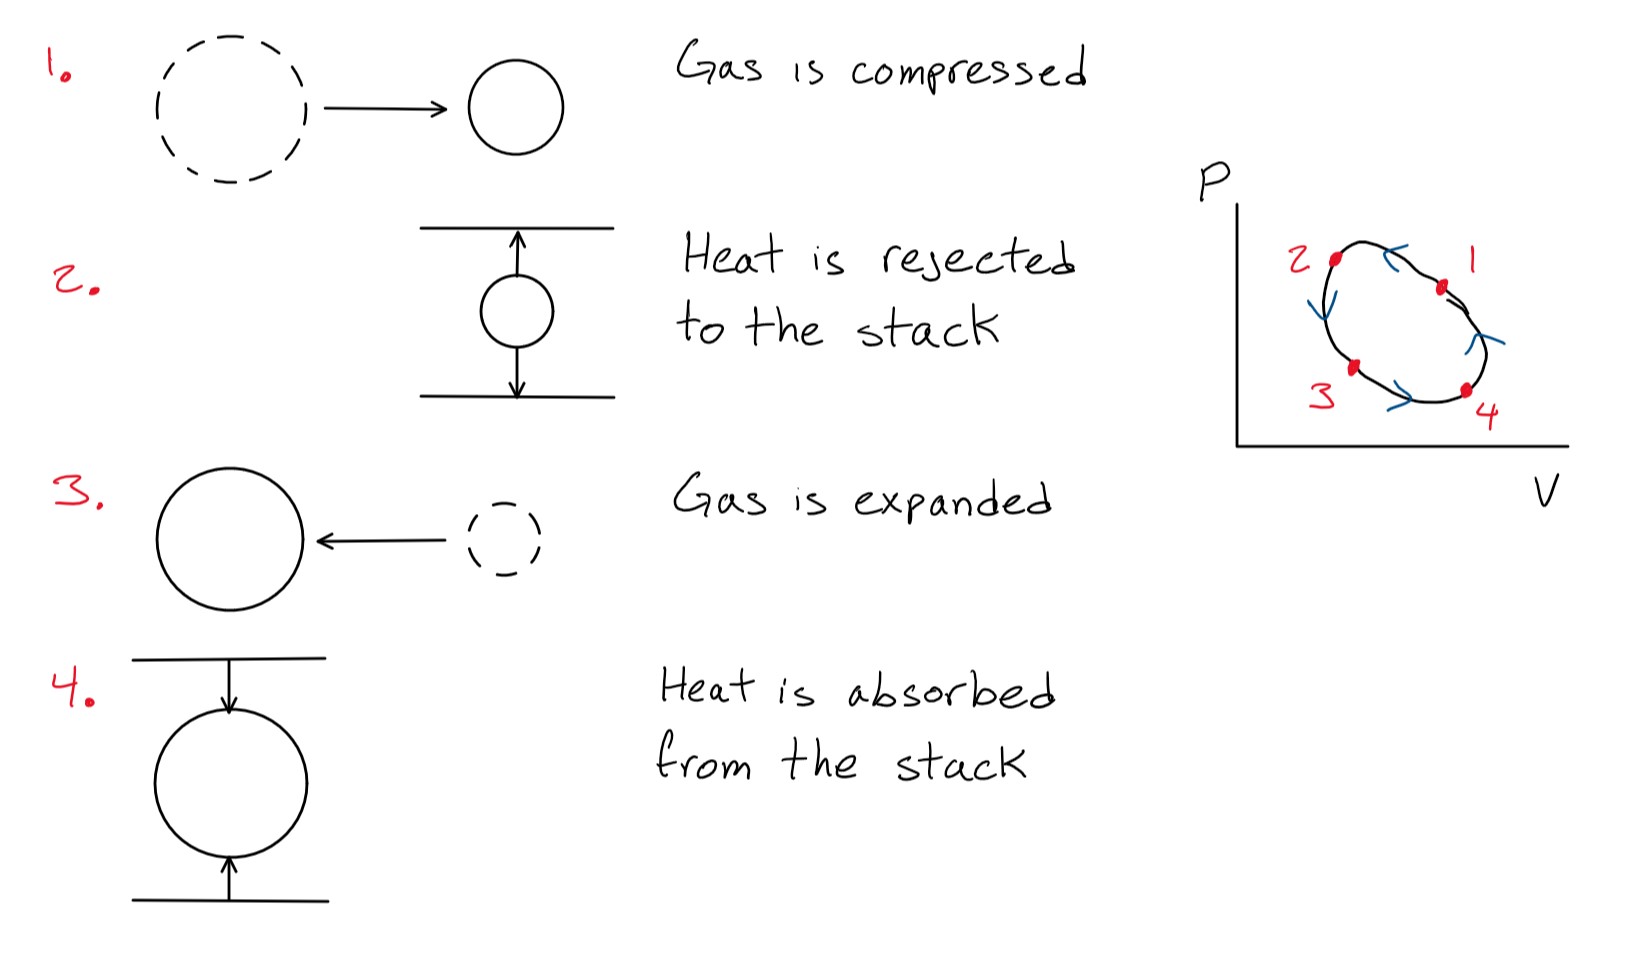 1.
Gas is compressed
2.
Heat is rejected
to the stack
3.
Gas is expanded
4.
Heat is absorbed
from the stack
P
2
1
3
4
V